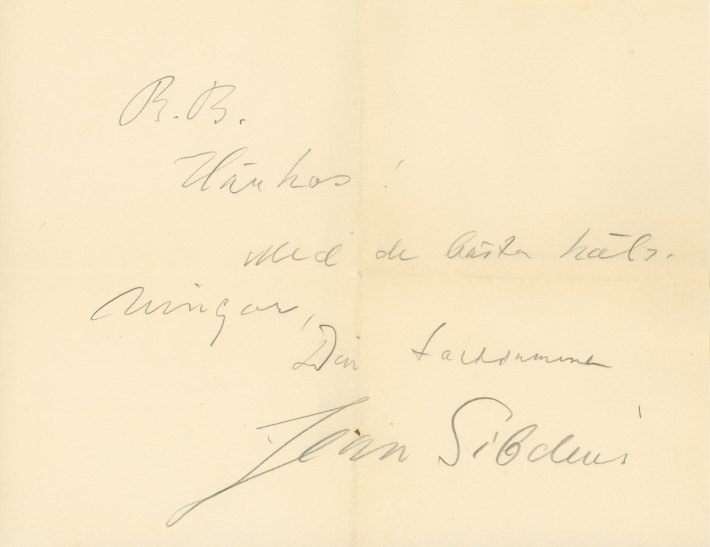 B. B.
Härhos!
Med de bästa häls-
ningar,
Din tacksamme
Jean Sibelius